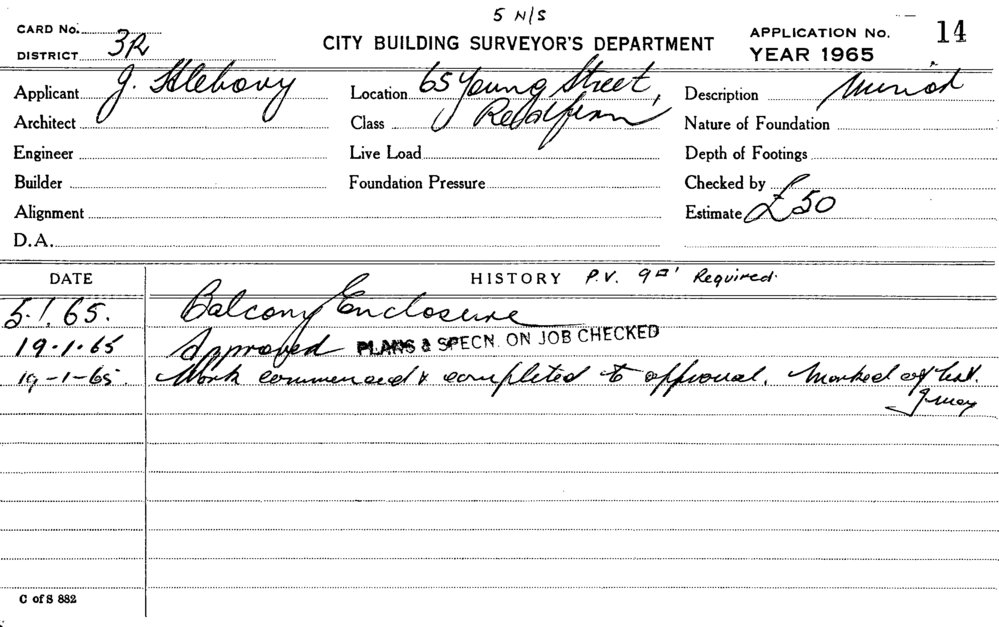 5 N/S
CARD No.
DISTRICT 3R
CITY BUILDING SURVEYOR'S DEPARTMENT
APPLICATION No. 14
YEAR 1965
Applicant J.
Location 65 Young Street,
Description
Architect
Class Redfern
Nature of Foundation
Engineer
Live Load
Depth of Footings
Builder
Foundation Pressure
Checked by
Alignment
Estimate £50
D.A.
DATE
HISTORY P.V. 9□' Required.
5.1.65. Balcony Enclosure
19.1.65 Approved PLANS & SPECN. ON JOB CHECKED
19-1-65. Work commenced & completed to approval. Marked off list.
C of S 882